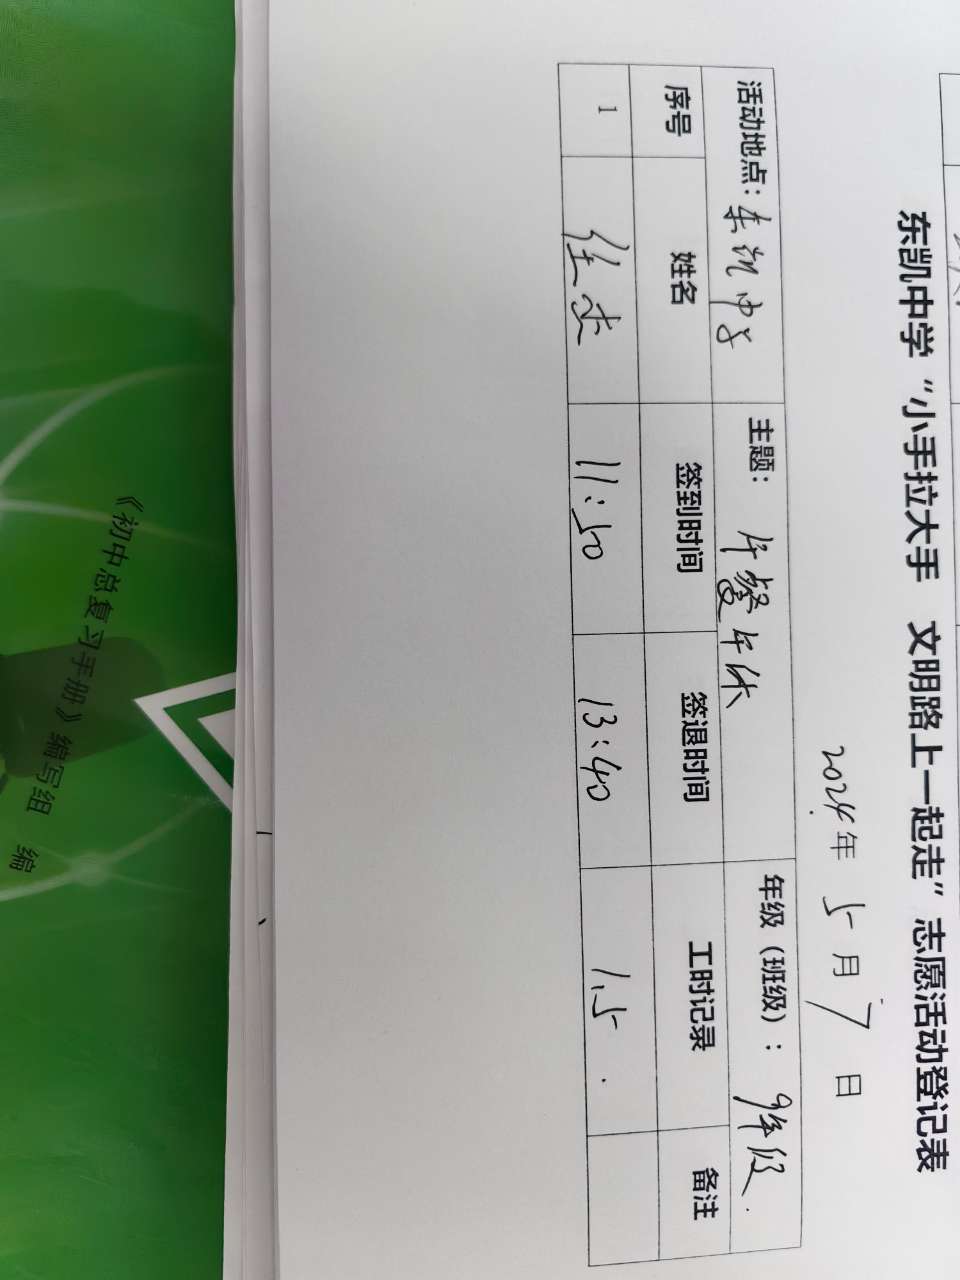 东凯中学“小手拉大手 文明路上一起走”志愿活动登记表
2024年 5 月 7 日
活动地点：东凯中学 主题： 午餐午休 年级（班级）：9年级
序号 姓名 签到时间 签退时间 工时记录 备注
1 任杰 11:50 13:40 1.5
《初中总复习手册》编写组 编